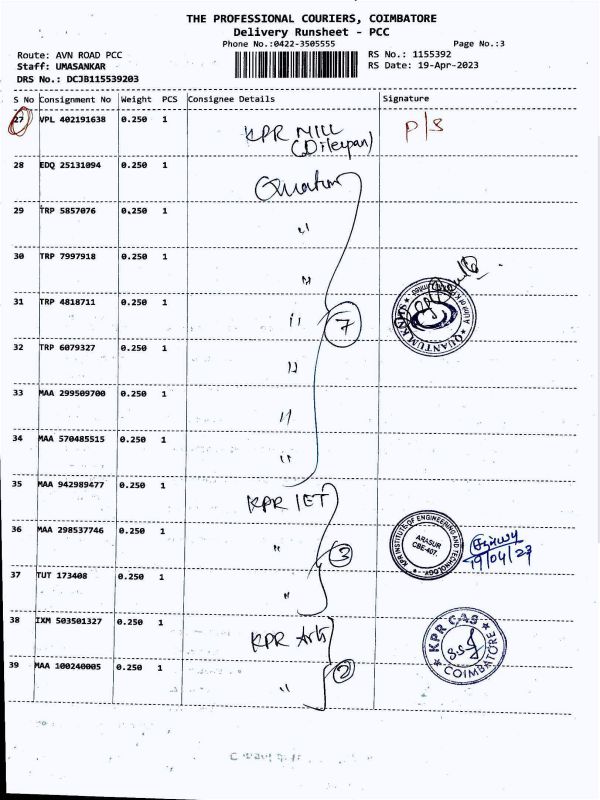 THE PROFESSIONAL COURIERS, COIMBATORE
Delivery Runsheet - PCC
Phone No.:0422-3505555 Page No.:3
Route: AVN ROAD PCC RS No.: 1155392
Staff: UMASANKAR RS Date: 19-Apr-2023
DRS No.: DCJB115539203
S No Consignment No Weight PCS Consignee Details Signature
27 VPL 402191638 0.250 1 KPR MILL P/S
28 EDQ 25131094 0.250 1 Quantum
29 TRP 5857076 0.250 1 "
30 TRP 7997918 0.250 1 "
31 TRP 4818711 0.250 1 " 7 QUANTUM
32 TRP 6079327 0.250 1 "
33 MAA 299509700 0.250 1 "
34 MAA 570485515 0.250 1 "
35 MAA 942989477 0.250 1 KPR IET
36 MAA 298537746 0.250 1 " 3 KPR INSTITUTE OF ENGINEERING AND TECHNOLOGY ARASUR CBE-407. 19/04/23
37 TUT 173408 0.250 1 "
38 IXM 503501327 0.250 1 KPR Arts KPR CAS COIMBATORE
39 MAA 100240005 0.250 1 " 2